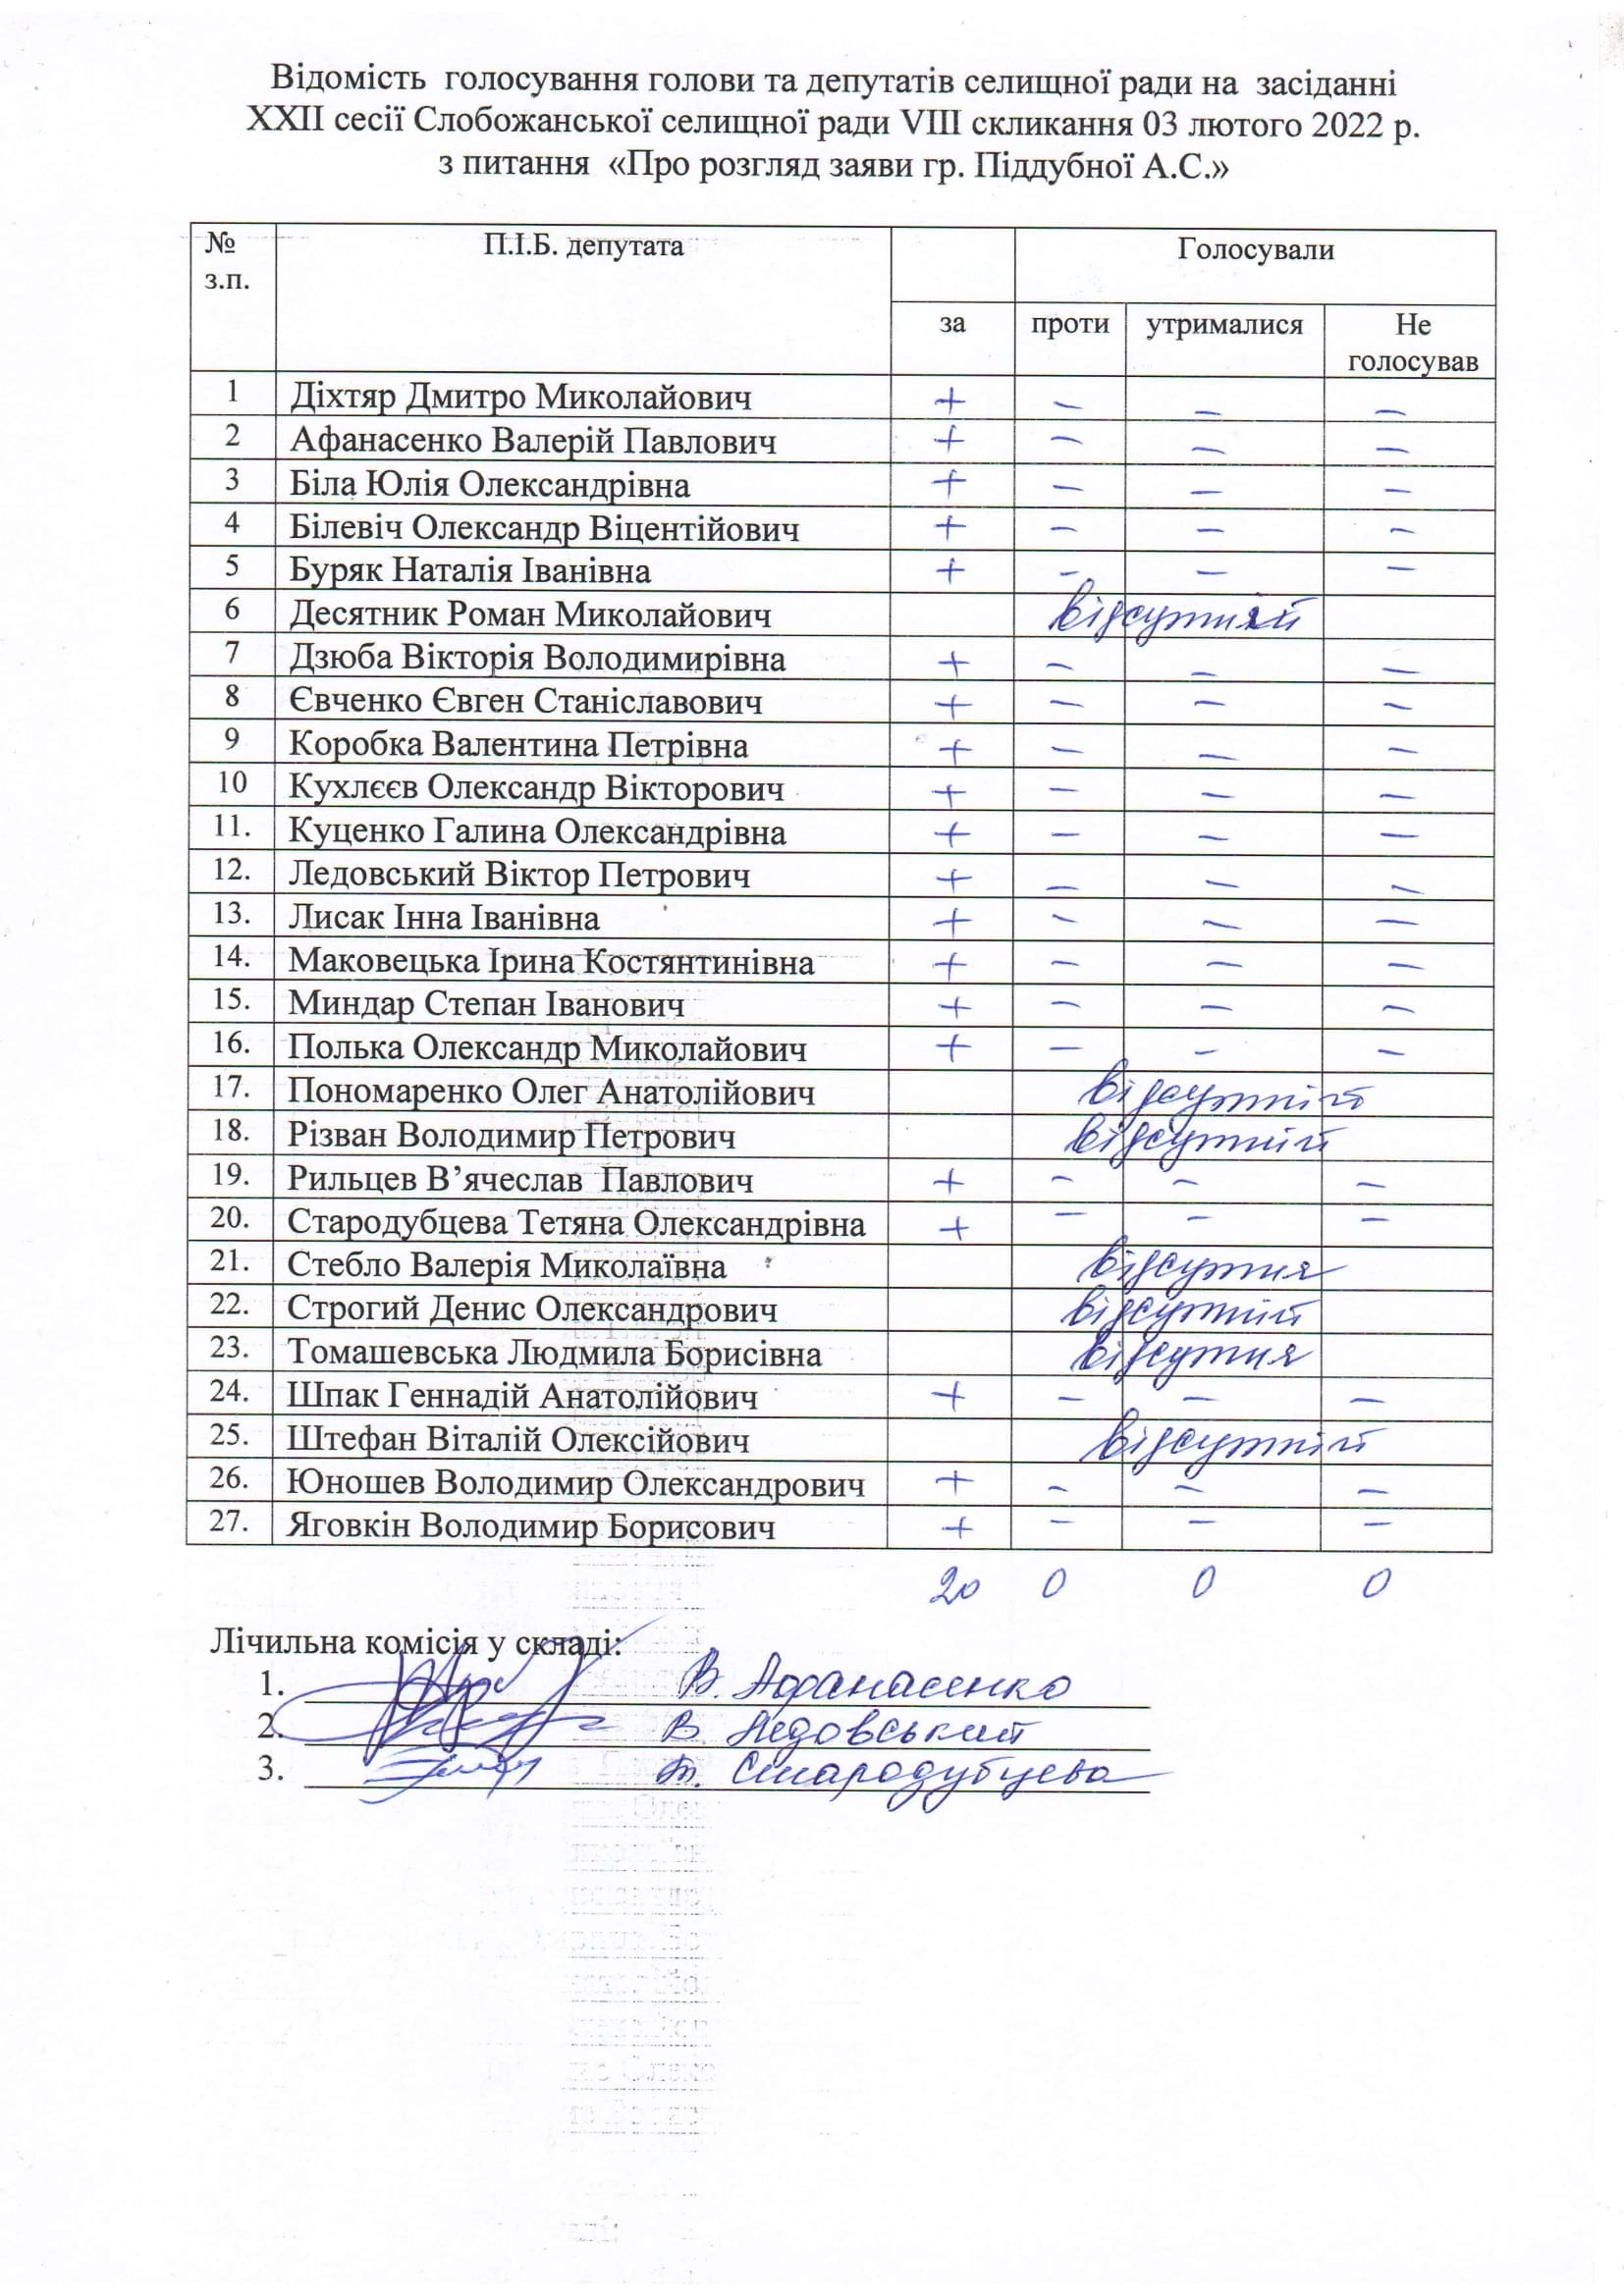 Відомість голосування голови та депутатів селищної ради на засіданні
XXII сесії Слобожанської селищної ради VIII скликання 03 лютого 2022 р.
з питання «Про розгляд заяви гр. Піддубної А.С.»
№ з.п. П.І.Б. депутата Голосували
за проти утрималися Не голосував
1 Діхтяр Дмитро Миколайович + – – –
2 Афанасенко Валерій Павлович + – – –
3 Біла Юлія Олександрівна + – – –
4 Білевіч Олександр Віцентійович + – – –
5 Буряк Наталія Іванівна + – – –
6 Десятник Роман Миколайович відсутній
7 Дзюба Вікторія Володимирівна + – – –
8 Євченко Євген Станіславович + – – –
9 Коробка Валентина Петрівна + – – –
10 Кухлєєв Олександр Вікторович + – – –
11. Куценко Галина Олександрівна + – – –
12. Ледовський Віктор Петрович + – – –
13. Лисак Інна Іванівна + – – –
14. Маковецька Ірина Костянтинівна + – – –
15. Миндар Степан Іванович + – – –
16. Полька Олександр Миколайович + – – –
17. Пономаренко Олег Анатолійович відсутній
18. Різван Володимир Петрович відсутній
19. Рильцев В’ячеслав Павлович + – – –
20. Стародубцева Тетяна Олександрівна + – – –
21. Стебло Валерія Миколаївна відсутня
22. Строгий Денис Олександрович відсутній
23. Томашевська Людмила Борисівна відсутня
24. Шпак Геннадій Анатолійович + – – –
25. Штефан Віталій Олексійович відсутній
26. Юношев Володимир Олександрович + – – –
27. Яговкін Володимир Борисович + – – –
20 0 0 0
Лічильна комісія у складі:
1. В. Афанасенко
2. В. Ледовський
3. Т. Стародубцева